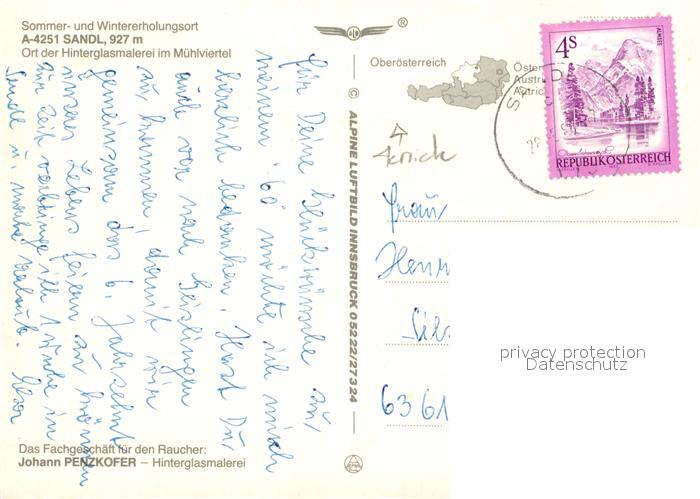 Sommer- und Wintererholungsort
A-4251 SANDL, 927 m
Ort der Hinterglasmalerei im Mühlviertel
für Deine Glückwünsche zu
meinem "60" möchte ich mich
herzlich bedanken. Hast Du
auch vor nach Geislingen
zu kommen, damit wir
gemeinsam das 6. Jahrzehnt
unseres Lebens feiern zu können
zur Zeit verbringe ich 1 Woche in
Sandl u. mache Urlaub.
Das Fachgeschäft für den Raucher:
Johann PENZKOFER – Hinterglasmalerei
®
© ALPINE LUFTBILD INNSBRUCK 05222/27324
Oberösterreich
Öster
Austri
Autric
4S
ALMSEE
REPUBLIK ÖSTERREICH
Frau
Henr
Sils
6361
privacy protection
Datenschutz